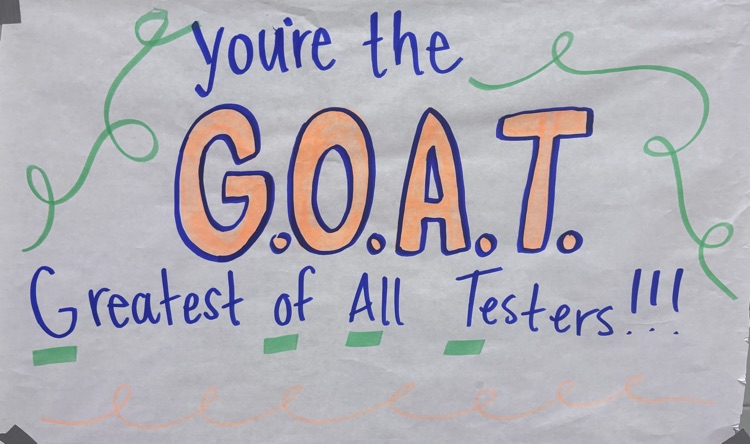 you're the
G.O.A.T.
Greatest of All Testers!!!